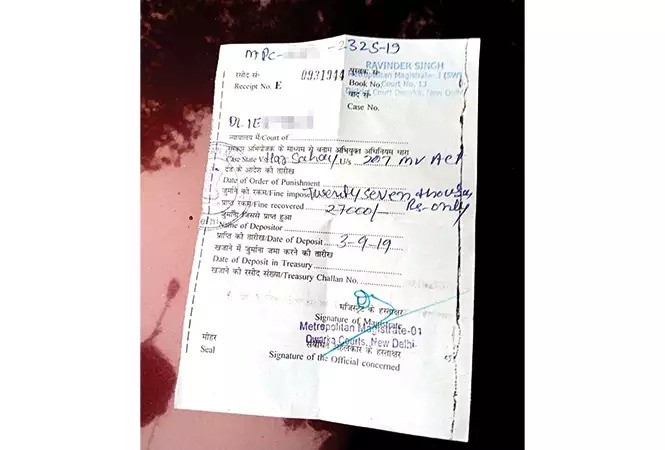 MPC- -2325-19
RAVINDER SINGH
Metropolitan Magistrate-I (SW)
रसीद सं० 0931944 पुस्तक सं०
Receipt No. E Book No. Court No. 13
District Court Dwarka, New Delhi
वाद सं०
Case No.
DL1E
न्यायालय में/Court of
सरकार अभियोजक के माध्यम से बनाम अभियुक्त अधिनियम धारा
Case State V/s Har Sahay U/s 207 MV Act
दंड के आदेश की तारीख
Date of Order of Punishment
जुर्माने की रकम/Fine imposed Twenty seven thousand
प्राप्त रकम/Fine recovered 27000/- Rs. only
जुर्माना जिससे प्राप्त हुआ
Name of Depositor
प्राप्ति की तारीख/Date of Deposit 3-9-19
खजाने में जुर्माना जमा करने की तारीख
Date of Deposit in Treasury
खजाने की रसीद संख्या/Treasury Challan No.
मजिस्ट्रेट के हस्ताक्षर
Signature of Magistrate
Metropolitan Magistrate-01
Dwarka Courts, New Delhi
मोहर संबंधित अहलकार के हस्ताक्षर
Seal Signature of the Official concerned